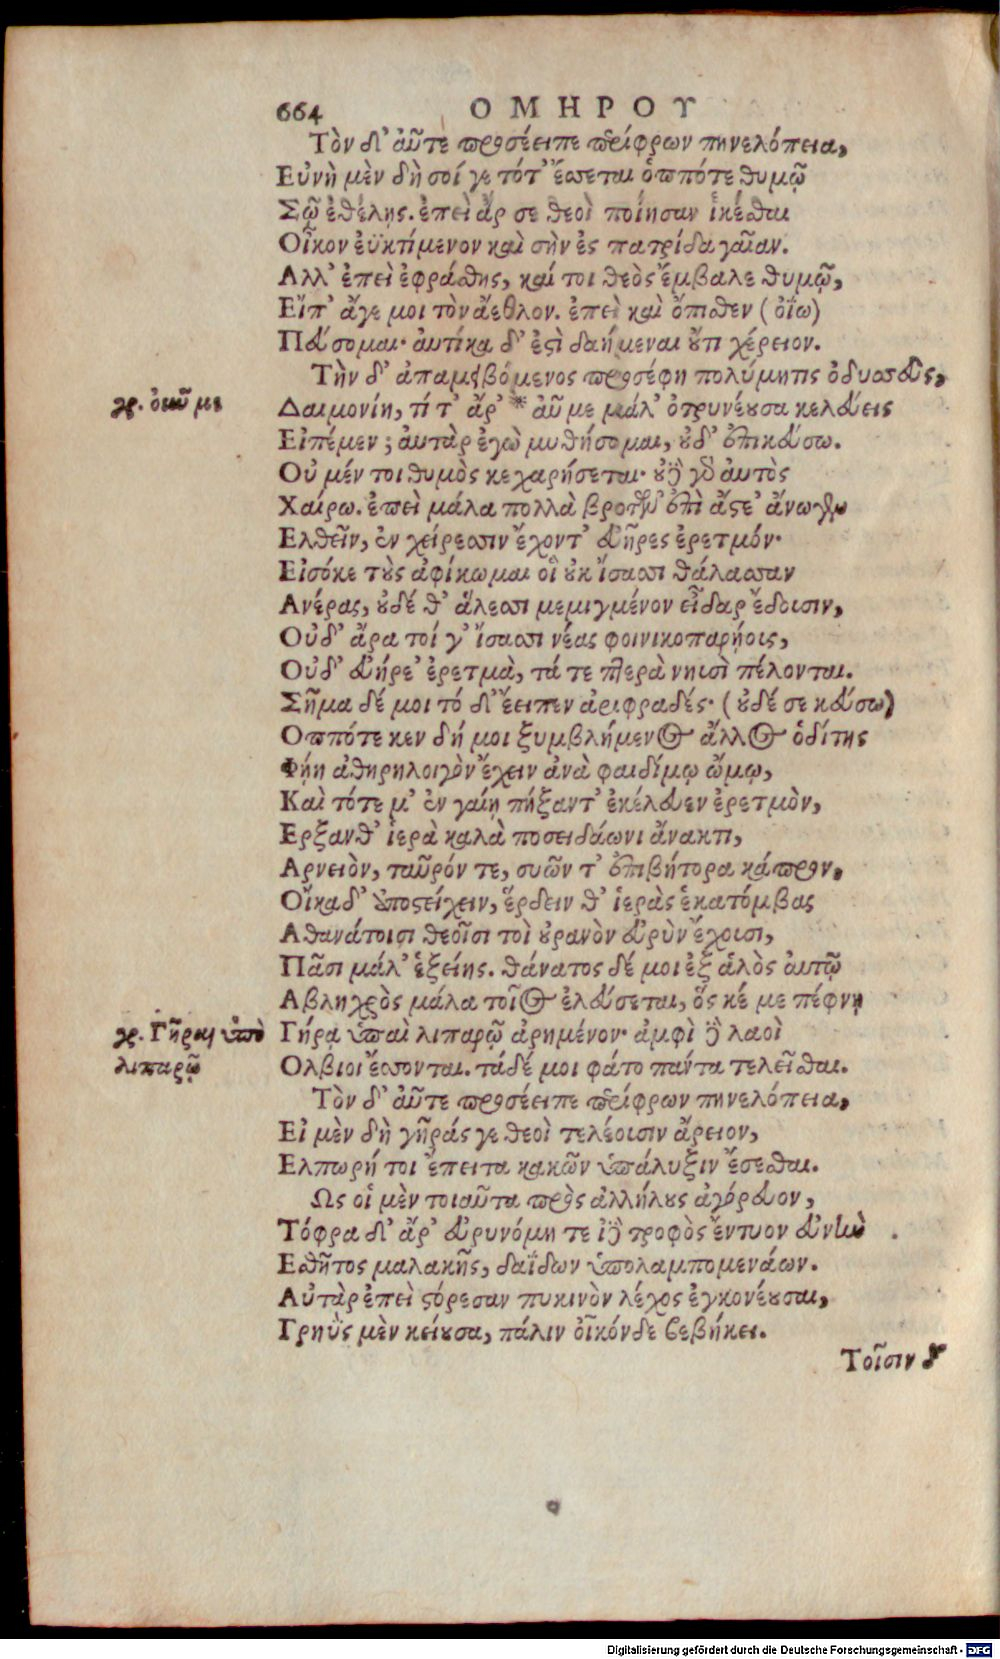 664 ΟΜΗΡΟΥ
Τὸν δ' αὖτε προσέειπε περίφρων πηνελόπεια,
Εὐνὴ μὲν δὴ σοί γε τότ' ἔσσεται ὁππότε θυμῷ
Σῷ ἐθέλῃς. ἐπεὶ ἄρ σε θεοὶ ποίησαν ἱκέσθαι
Οἶκον ἐϋκτίμενον καὶ σὴν ἐς πατρίδα γαῖαν.
Αλλ' ἐπεὶ ἐφράσθης, καί τοι θεὸς ἔμβαλε θυμῷ,
Εἴπ' ἄγε μοι τὸν ἄεθλον. ἐπεὶ καὶ ὄπισθεν (ὀΐω)
Πεύσομαι· αὐτίκα δ' ἐστὶ δαήμεναι οὔτι χέρειον.
Τὴν δ' ἀπαμειβόμενος προσέφη πολύμητις ὀδυσσεύς,
γρ. ὀκοῦ με
Δαιμονίη, τί τ' ἄρ' * αὖ με μάλ' ὀτρυνέουσα κελεύεις
Εἰπέμεν; αὐτὰρ ἐγὼ μυθήσομαι, οὐδ' ἐπικεύσω.
Οὐ μέν τοι θυμὸς κεχαρήσεται· οὐδὲ γὰρ αὐτὸς
Χαίρω. ἐπεὶ μάλα πολλὰ βροτῶν ἐπὶ ἄστε' ἄνωγεν
Ελθεῖν, ἐν χείρεσσιν ἔχοντ' εὐῆρες ἐρετμόν·
Εἰσόκε τοὺς ἀφίκωμαι οἳ οὐκ ἴσασι θάλασσαν
Ανέρας, οὐδέ θ' ἅλεσσι μεμιγμένον εἶδαρ ἔδουσιν,
Οὐδ' ἄρα τοί γ' ἴσασι νέας φοινικοπαρῄους,
Οὐδ' εὐήρε' ἐρετμὰ, τά τε πτερὰ νηυσὶ πέλονται.
Σῆμα δέ μοι τό δ' ἔειπεν ἀριφραδές· (οὐδέ σε κεύσω)
Οππότε κεν δή μοι ξυμβλήμενος ἄλλος ὁδίτης
Φήῃ ἀθηρηλοιγὸν ἔχειν ἀνὰ φαιδίμῳ ὤμῳ,
Καὶ τότε μ' ἐν γαίῃ πήξαντ' ἐκέλευεν ἐρετμὸν,
Ερξανθ' ἱερὰ καλὰ ποσειδάωνι ἄνακτι,
Αρνειὸν, ταῦρόν τε, συῶν τ' ἐπιβήτορα κάπρον,
Οἴκαδ' ἀποστείχειν, ἕρδειν θ' ἱερὰς ἑκατόμβας
Αθανάτοισι θεοῖσι τοὶ οὐρανὸν εὐρὺν ἔχουσι,
Πᾶσι μάλ' ἑξείης. θάνατος δέ μοι ἐξ ἁλὸς αὐτῷ
Αβληχρὸς μάλα τοῖος ἐλεύσεται, ὅς κέ με πέφνῃ
γρ. Γῆραι ὑπὸ
Γήρᾳ ὑπαὶ λιπαρῷ ἀρημένον· ἀμφὶ δὲ λαοὶ
λιπαρῷ
Ολβιοι ἔσσονται. τάδέ μοι φάτο πάντα τελεῖσθαι.
Τὸν δ' αὖτε προσέειπε περίφρων πηνελόπεια,
Εἰ μὲν δὴ γῆράς γε θεοὶ τελέουσιν ἄρειον,
Ελπωρή τοι ἔπειτα κακῶν ὑπάλυξιν ἔσεσθαι.
Ως οἱ μὲν τοιαῦτα πρὸς ἀλλήλους ἀγόρευον,
Τόφρα δ' ἄρ' εὐρυνόμη τε ἰδὲ τροφὸς ἔντυον εὐνὴν
Εσθῆτος μαλακῆς, δαΐδων ὑπολαμπομενάων.
Αὐτὰρ ἐπεὶ στόρεσαν πυκινὸν λέχος ἐγκονέουσαι,
Γρηῢς μὲν κείουσα, πάλιν οἶκόνδε βεβήκει.
Τοῖσιν δ'
Digitalisierung gefördert durch die Deutsche Forschungsgemeinschaft - DFG